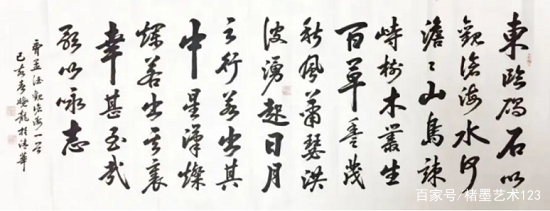 東臨碣石以
觀滄海水何
澹々山島竦
峙樹木叢生
百草豐茂
秋風蕭瑟洪
波湧起日月
之行若出其
中星漢燦
爛若出其裏
幸甚至哉
歌以咏志
曹孟德觀滄海一首
己亥 龍於清華
百家号/楮墨艺术123